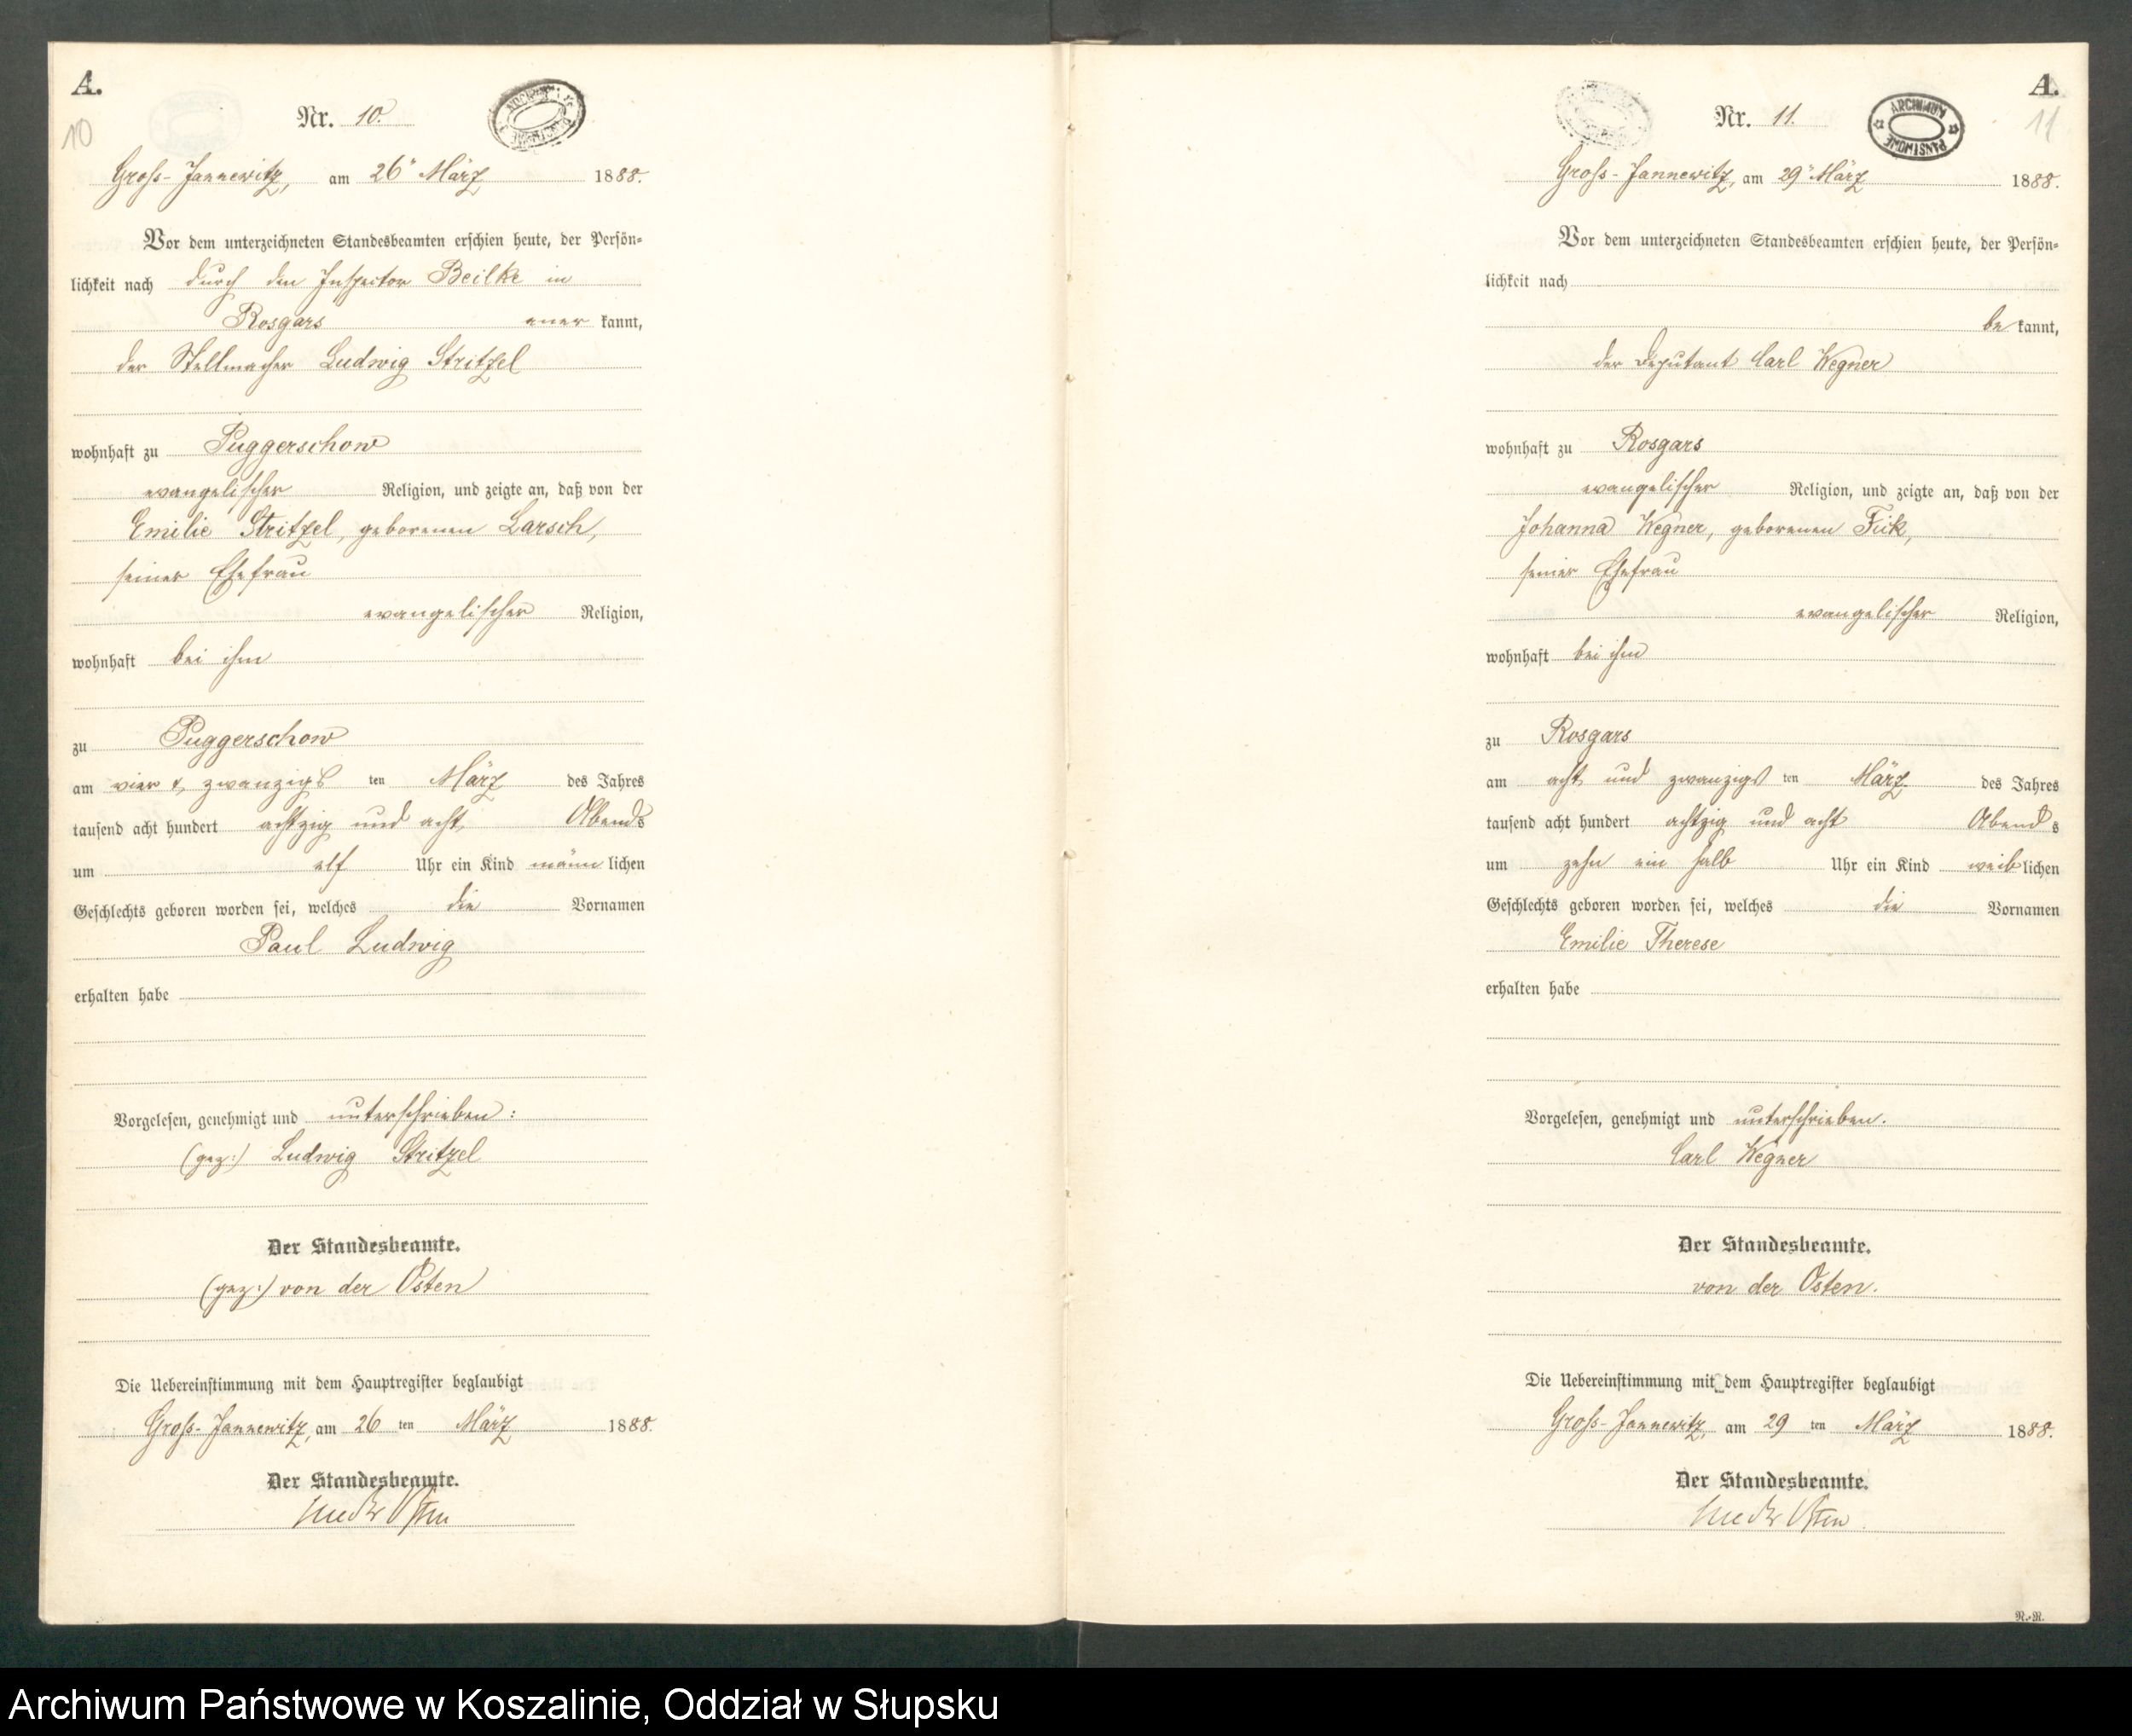 A.
10
Nr. 10.
Groß-Jannewitz, am 26ⁿ März 1888.
Vor dem unterzeichneten Standesbeamten erschien heute, der Persön-
lichkeit nach durch den Inspector Beilke in
Rosgars aner kannt,
der Stellmacher Ludwig Stritzel
wohnhaft zu Puggerschow
evangelischer Religion, und zeigte an, daß von der
Emilie Stritzel, geborenen Larsch,
seiner Ehefrau
evangelischer Religion,
wohnhaft bei ihm
zu Puggerschow
am vier & zwanzigs ten März des Jahres
tausend acht hundert achtzig und acht Abends
um elf Uhr ein Kind männ lichen
Geschlechts geboren worden sei, welches die Vornamen
Paul Ludwig
erhalten habe
Vorgelesen, genehmigt und unterschrieben:
(gez:) Ludwig Stritzel
Der Standesbeamte.
(gez:) von der Osten
Die Uebereinstimmung mit dem Hauptregister beglaubigt
Groß-Jannewitz, am 26 ten März 1888.
Der Standesbeamte.
von der Osten
A.
11
Nr. 11.
ARCHIWUM PAŃSTWOWE
Groß-Jannewitz, am 29ⁿ März 1888.
Vor dem unterzeichneten Standesbeamten erschien heute, der Persön-
lichkeit nach
be kannt,
der Deputant Carl Wegner
wohnhaft zu Rosgars
evangelischer Religion, und zeigte an, daß von der
Johanna Wegner, geborenen Fick,
seiner Ehefrau
evangelischer Religion,
wohnhaft bei ihm
zu Rosgars
am acht und zwanzigs ten März des Jahres
tausend acht hundert achtzig und acht Abend s
um zehn ein halb Uhr ein Kind weib lichen
Geschlechts geboren worden sei, welches die Vornamen
Emilie Therese
erhalten habe
Vorgelesen, genehmigt und unterschrieben.
Carl Wegner
Der Standesbeamte.
von der Osten.
Die Uebereinstimmung mit dem Hauptregister beglaubigt
Groß-Jannewitz, am 29 ten März 1888.
Der Standesbeamte.
von der Osten
N.-M.
Archiwum Państwowe w Koszalinie, Oddział w Słupsku